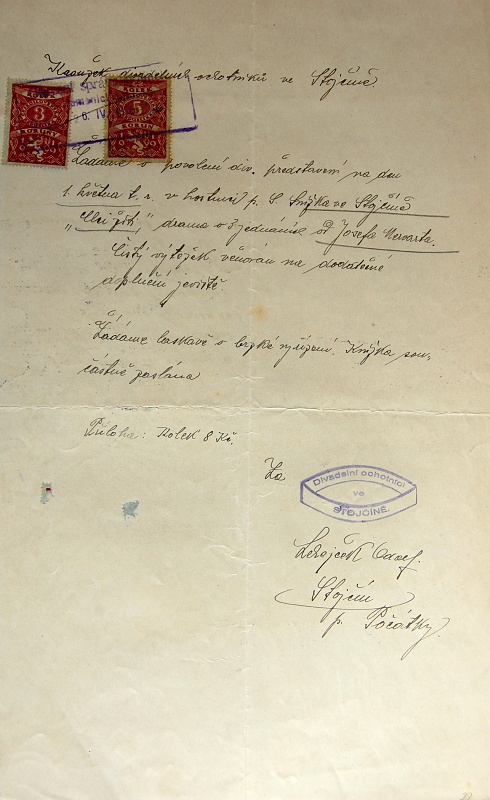 Kroužek divadelních ochotníků ve Stojčíně
KOLEK
3
KORUNY
KOLEK
5
KORUN
6. IV.
Žádáme o povolení div. představení na den
1. května t. r. v hostinci p. S. Smýk
ve Stojčíně
" drama o 3 jednáních od Josefa Mervarta.
Čistý výtěžek věnován na dodatečné
doplnění jeviště.
Žádáme laskavě o brzké vyřízení. Knížka sou-
částně zaslána
Příloha: Kolek 8 Kč.
Za
Divadelní ochotníci
ve
STOJČÍNĚ.
Josef.
Stojčín
p. Počátky.